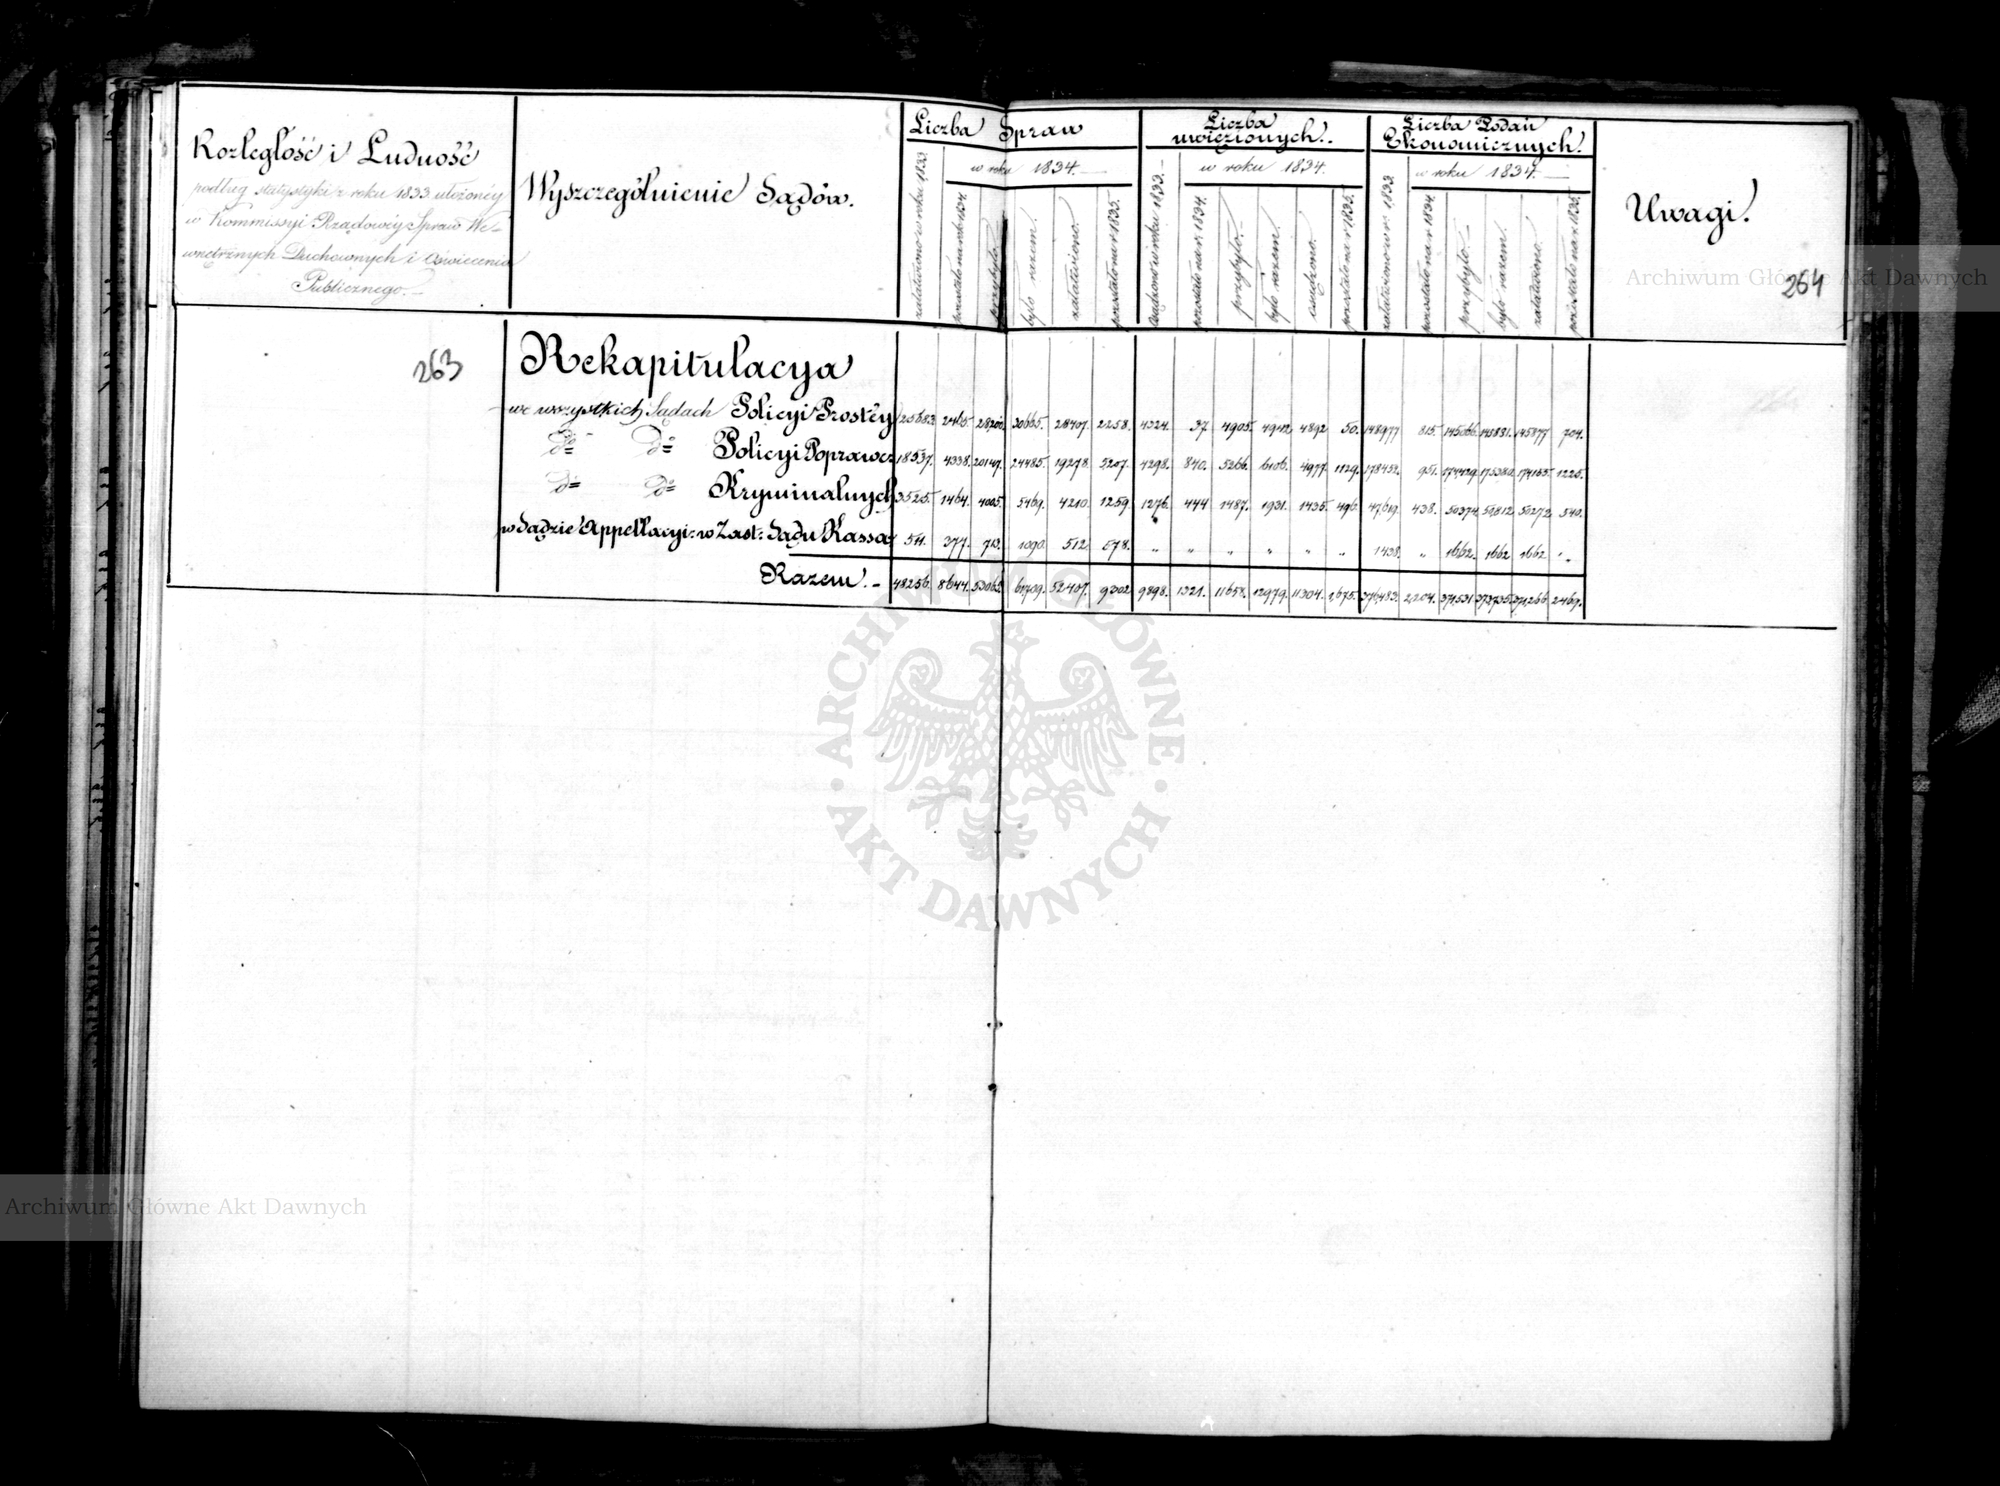 Rozległość i Ludność
podług statystyki z roku 1833 ułożonéy
w Kommissyi Rządowéy Spraw We-
wnętrznych Duchownych i Oświecenia
Publicznego.
Wyszczególnienie Sądów.
Liczba Spraw
załatwiono w roku 1833.
w roku 1834.
pozostało na rok 1834.
przybyło.
było razem.
załatwiono.
pozostało na r 1835.
Liczba
uwięzionych.
Osądzono w roku 1833.
w roku 1834.
pozostało na r. 1834.
przybyło.
było razem.
osądzono.
pozostało na r 1835.
Liczba Podań
Ekonomicznych.
załatwiono w r 1833.
w roku 1834.
pozostało na r 1834.
przybyło.
było razem.
załatwiono.
pozostało na r 1835.
Uwagi.
264
263
Rekapitulacya
we wszystkich Sądach Policyi Prostéy 25683. 2465. 28200. 30665. 28407. 2258. 4324. 37 4905. 4942 4892 50. 148977 815. 145066. 145881. 145177 704.
do do Policyi Poprawcz 18537. 4338. 20147. 24485. 19278. 5207. 4298. 840. 5266. 6106. 4977. 1129. 178452. 951. 174429. 175380. 174155. 1225.
do do Kryminalnych 3525. 1464. 4005. 5469. 4210. 1259. 1276. 444 1487. 1931. 1435. 496. 47619. 438. 50374. 50812. 50272. 540.
w Sądzie Appellacyi: w Zast: Sądu Kassa: 511. 377. 713. 1090. 512. 578. „ „ „ „ „ „ 1438. „ 1662. 1662 1662 „
Razem. 48256. 8644. 53065. 61709. 52407. 9302. 9898. 1321. 11658. 12979. 11304. 1,675. 376,483. 2,204. 371,531 373,735. 371,266. 2469.
Archiwum Główne Akt Dawnych
ARCHIWUM GŁÓWNE
AKT DAWNYCH
Archiwum Główne Akt Dawnych